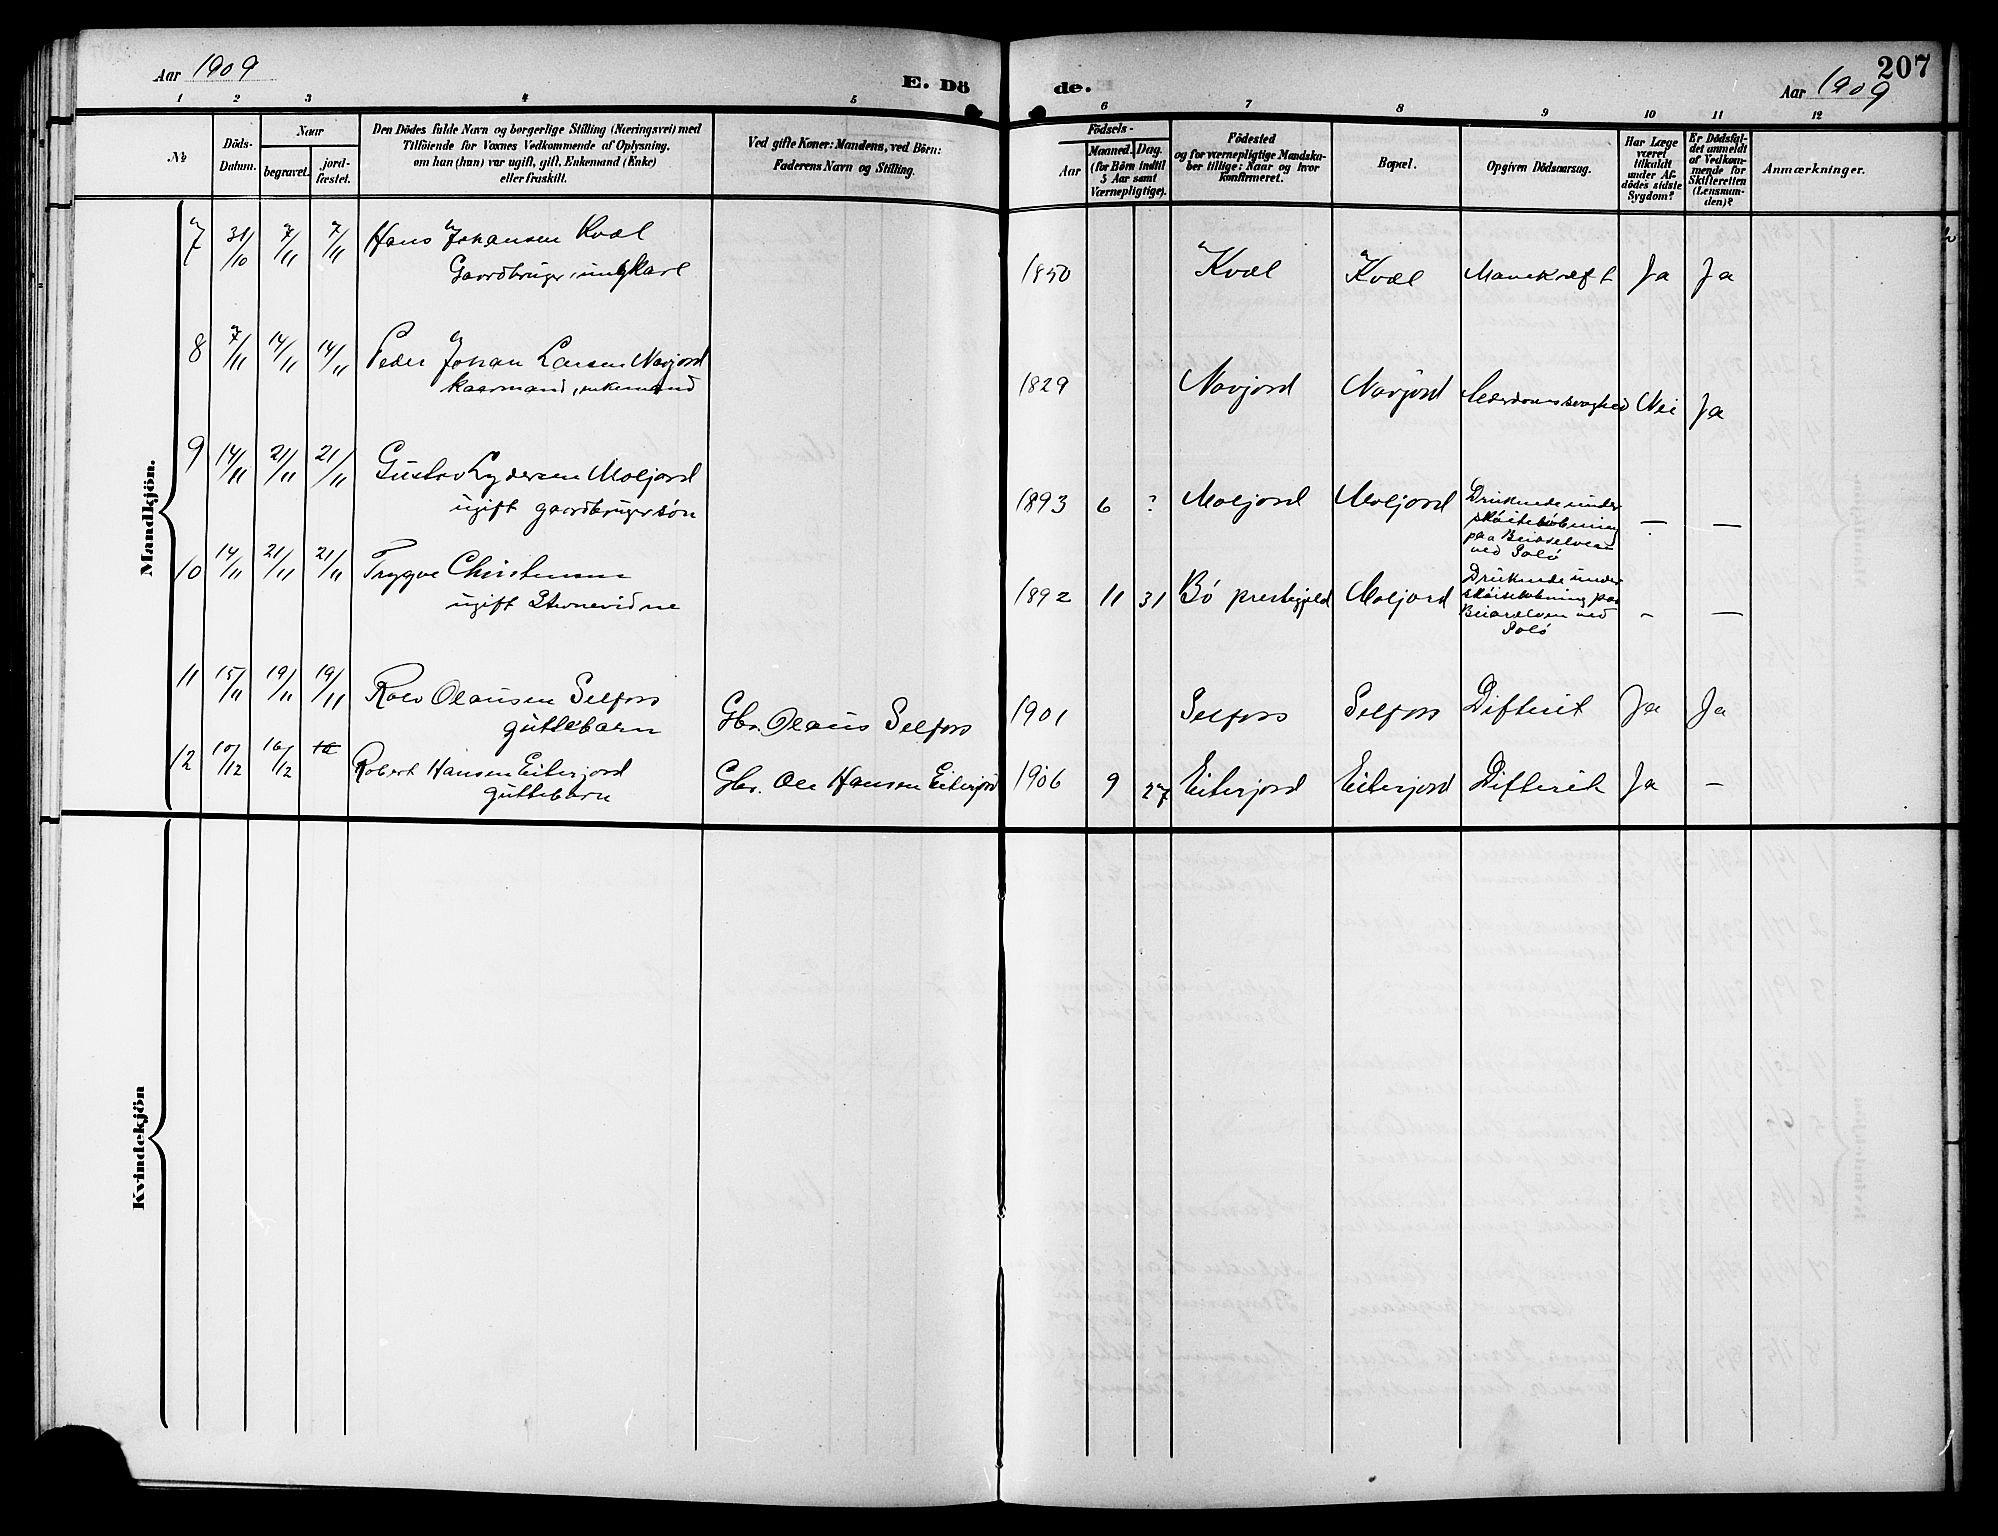 Aar 1909
E. Dö
de.
207
Aar 1909
1 2 3 4 5 6 7 8 9 10 11 12
No
Döds-
Datum.
Naar
begravet.
jord-
fæstet.
Den Dödes fulde Navn og borgerlige Stilling (Næringsvei) med
Tilföiende for Voxnes Vedkommende af Oplysning,
om hun (han) var ugift, gift, Enkemand (Enke)
eller fraskilt.
Ved gifte Koner: Mandens, ved Börn:
Faderens Navn og Stilling.
Födsels-
Aar
Maaned. Dag.
(for Börn indtil
5 Aar samt
Værnepligtige).
Födested
og for værnepligtige Mandska-
ber tillige: Naar og hvor
konfirmeret.
Bopæl.
Opgiven Dödsaarsag.
Har Læge
været
tilkaldt
under Af-
dödes sidste
Sygdom?
Er Dödsfal-
det anmeldt
af Vedkom-
mende for
Skifteretten
(Lensman-
den)?
Anmærkninger.
Mandkjön.
7 31/10 7/11 7/11 Hans Johansen Kvæl
Gaardbruger, ungkarl
1850 Kvæl Kvæl Mavekræft Ja Ja
8 7/11 14/11 14/11 Peder Johan Larsen Navjord
kaarmand, enkemand
1829 Navjord Navjord Alderdomssvaghed Nei Ja
9 14/11 21/11 21/11 Gustav Lydersen Moljord
ugift gaardbrugersøn
1893 6 ? Moljord Moljord Druknede under
skøiteløbning
paa Beiarelven
ved Solø
— —
10 14/11 21/11 21/11 Trygve Christensen
ugift
1892 11 31 Bø prestegjeld Moljord Druknede under
skøiteløbning paa
Beiarelven ved
Solø
- —
11 15/11 19/11 19/11 Rolv Olausen Selfors
guttebarn
Gbr. Olaus Selfors
1901 Selfors Selfors Difterit Ja Ja
12 10/12 16/12 Robert Hansen Eiterjord
guttebarn
Gbr. Ole Hansen Eiterjord
1906 9 27 Eiterjord Eiterjord Difterit Ja —
Kvindekjön